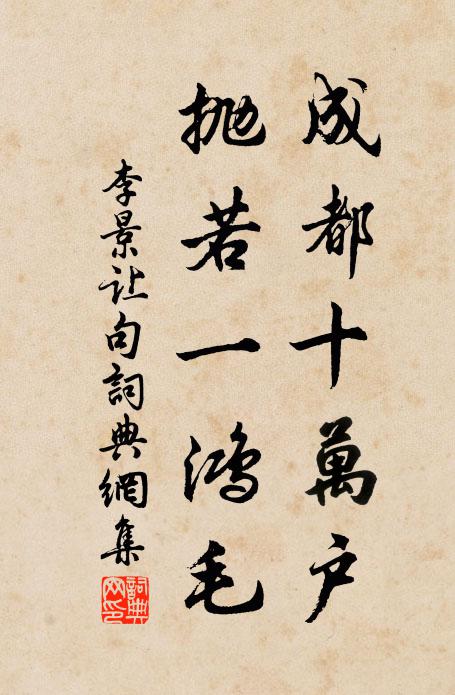 成都十萬户
抛若一鴻毛
李景让句詞典網集
詞典網印